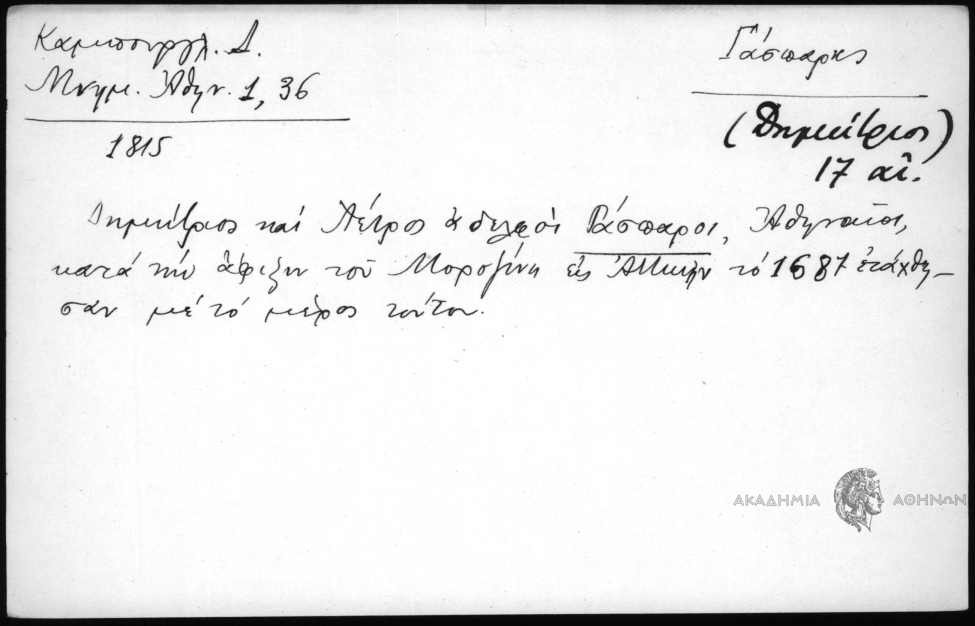 Καμπουργλ. Δ.
Μνημ. Ἀθην. 1, 36
1815
Γάσπαρης
(Δημήτριος)
17 αἰ.
Δημήτριος καί Πέτρος ἀδελφοί Γάσπαροι, Ἀθηναῖοι,
κατά τήν ἄφιξιν τοῦ Μοροζίνη εἰς Ἀττικήν τό 1687 ἐτάχθη-
σαν μέ τό μέρος τούτου.
ΑΚΑΔΗΜΙΑ ΑΘΗΝΩΝ